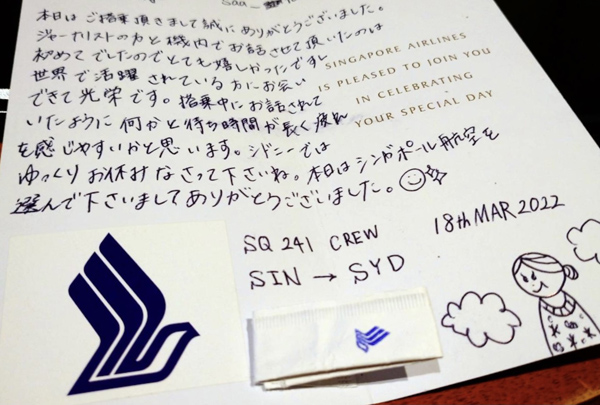 本日はご搭乗頂きまして誠にありがとうございました。
ジャーナリストの方と機内でお話させて頂いたのは
初めてでしたのでとても嬉しかったですし
世界で活躍されている方にお会い
できて光栄です。搭乗中にお話されて
いたように何かと待ち時間が長く疲れ
を感じやすいかと思います。シドニーでは
ゆっくりお休みなさって下さいね。本日はシンガポール航空を
選んで下さいましてありがとうございました。
SINGAPORE AIRLINES
IS PLEASED TO JOIN YOU
IN CELEBRATING
YOUR SPECIAL DAY
SQ 241 CREW
18th MAR 2022
SIN → SYD